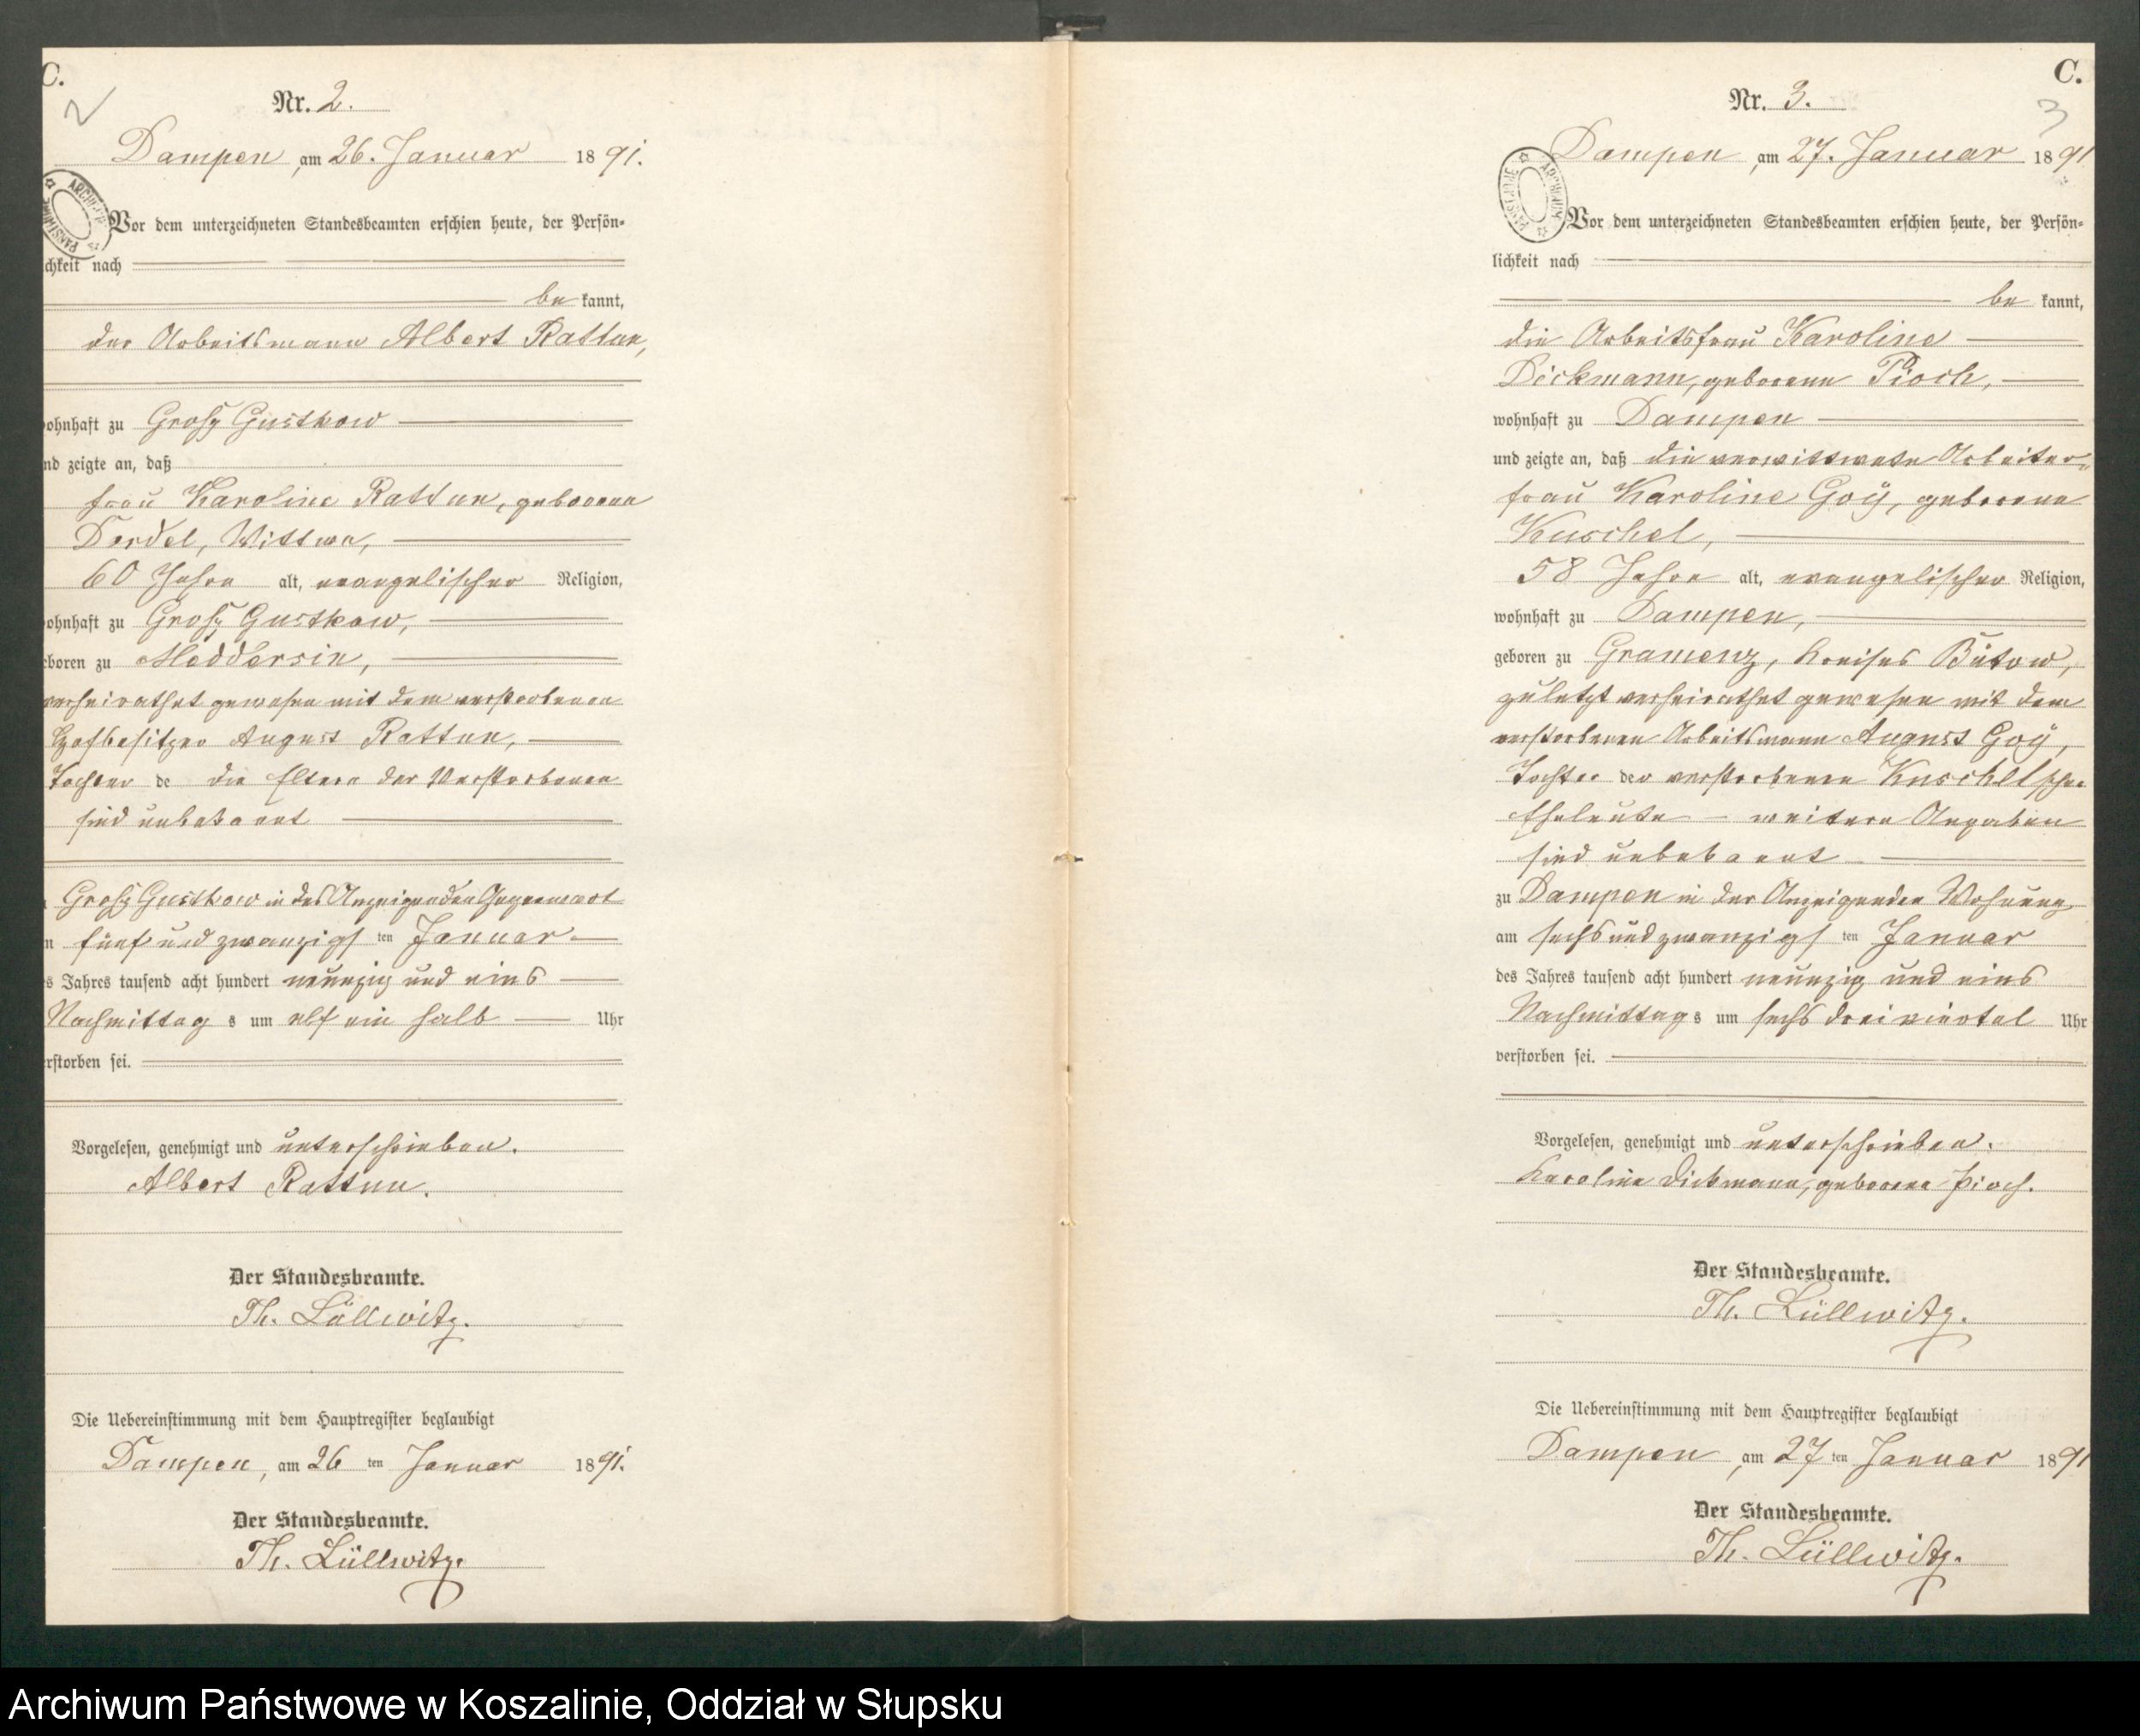 C.
2
Nr. 2.
Dampen, am 26. Januar 1891.
ARCHIWUM PAŃSTWOWE
Vor dem unterzeichneten Standesbeamten erschien heute, der Persön-
chkeit nach
be kannt,
der Arbeitsmann Albert Rattun,
ohnhaft zu Groß Gustkow
nd zeigte an, daß
Frau Karoline Rattun, geborene
Dordel, Wittwe,
60 Jahre alt, evangelischer Religion,
ohnhaft zu Groß Gustkow,
boren zu Meddersin,
verheirathet gewesen mit dem verstorbenen
Hofbesitzer August Rattun,
Tochter de die Eltern der Verstorbenen
sind unbekannt
Groß Gustkow in des Anzeigenden Gegenwart
m fünf und zwanzigs ten Januar
s Jahres tausend acht hundert neunzig und eins
Nachmittag s um elf ein halb Uhr
rstorben sei.
Vorgelesen, genehmigt und unterschrieben.
Albert Rattun.
Der Standesbeamte.
Th. Lüllwitz.
Die Uebereinstimmung mit dem Hauptregister beglaubigt
Dampen, am 26 ten Januar 1891.
Der Standesbeamte.
Th. Lüllwitz.
C.
3
Nr. 3.
Dampen, am 27. Januar 1891
ARCHIWUM PAŃSTWOWE
Vor dem unterzeichneten Standesbeamten erschien heute, der Persön-
lichkeit nach
be kannt,
die Arbeitsfrau Karoline
Dickmann, geborene Pioch,
wohnhaft zu Dampen
und zeigte an, daß die verwittwete Arbeiter-
frau Karoline Goÿ, geborene
Kuschel,
58 Jahre alt, evangelischer Religion,
wohnhaft zu Dampen,
geboren zu Gramenz, Kreises Bütow,
zuletzt verheirathet gewesen mit dem
verstorbenen Arbeitsmann August Goÿ,
Tochter der verstorbenen Kuschel'schen
Eheleute – weitere Angaben
sind unbekannt
zu Dampen in der Anzeigenden Wohnung
am sechs und zwanzigs ten Januar
des Jahres tausend acht hundert neunzig und eins
Nachmittag s um sechs dreiviertel Uhr
verstorben sei.
Vorgelesen, genehmigt und unterschrieben.
Karoline Dickmann, geborene Pioch.
Der Standesbeamte.
Th. Lüllwitz.
Die Uebereinstimmung mit dem Hauptregister beglaubigt
Dampen, am 27 ten Januar 1891
Der Standesbeamte.
Th. Lüllwitz.
Archiwum Państwowe w Koszalinie, Oddział w Słupsku